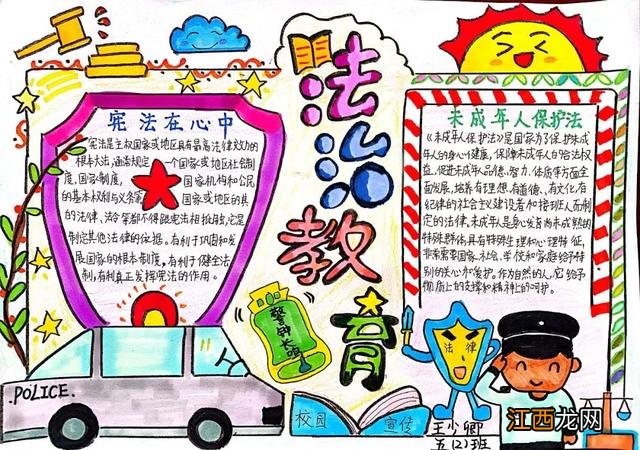 宪法在心中
宪法是主权国家或地区具有最高法律效力的
根本大法,通常规定一个国家或地区社会制
度,国家制度,国家机构和公民
的基本权利与义务等国家或地区的其
的法律、法令等都不得跟宪法相抵触,它是
制定其他法律的依据。有利于巩固和发
展国家的根本制度,有利于健全法
制,有利真正发挥宪法的作用。
法治教育
未成年人保护法
《未成年人保护法》是国家为了保护未成
年人的身心健康,保障未成年人的合法权
益,促进未成年人品德、智力、体质等方面全
面发展,培养有理想、有道德、有文化、有
纪律的社会主义建设者和接班人而制
定的法律。未成年人是身心发育尚未成熟的
特殊群体,具有特殊生理和心理特征,
非常需要国家、社会、学校和家庭给予特
别的关心和爱护。作为自然的人,它给予
物质上的支撑和精神上的呵护。
警钟长鸣
法律
POLICE.
校园
宣传
王少卿
五(2)班
江西龙网